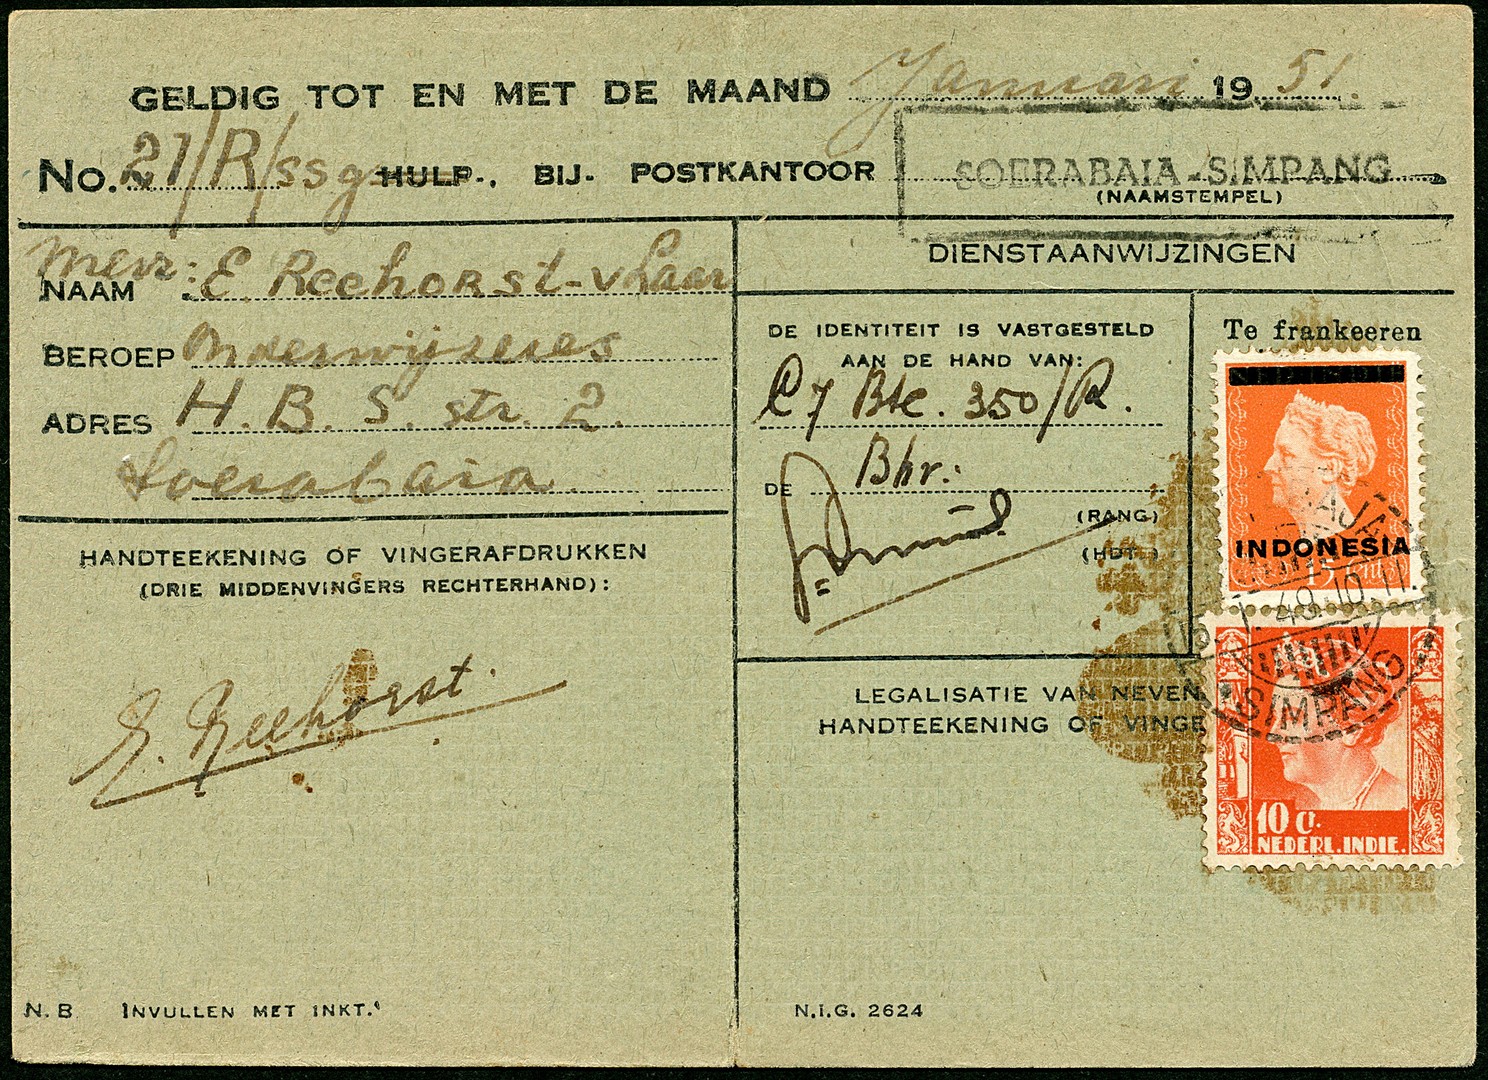 GELDIG TOT EN MET DE MAAND Januari 19 51.
No. 27/R/ssg HULP-, BIJ- POSTKANTOOR SOERABAIA-SIMPANG
(NAAMSTEMPEL)
Mevr: E. Reehorst-v Laar
NAAM
BEROEP Onderwijzeres
ADRES H. B. S. str. 2.
Soerabaia
HANDTEEKENING OF VINGERAFDRUKKEN
(DRIE MIDDENVINGERS RECHTERHAND):
E. Reehorst.
N.B INVULLEN MET INKT.
DIENSTAANWIJZINGEN
DE IDENTITEIT IS VASTGESTELD
AAN DE HAND VAN:
C7 Bte. 350/R.
DE Bhr:
(RANG)
(HDT.)
Te frankeeren
INDONESIA
15 cnt
49.10.11.
SIMPANG
10 ct.
NEDERL. INDIE.
LEGALISATIE VAN NEVEN
HANDTEEKENING OF VINGE
N.I.G. 2624